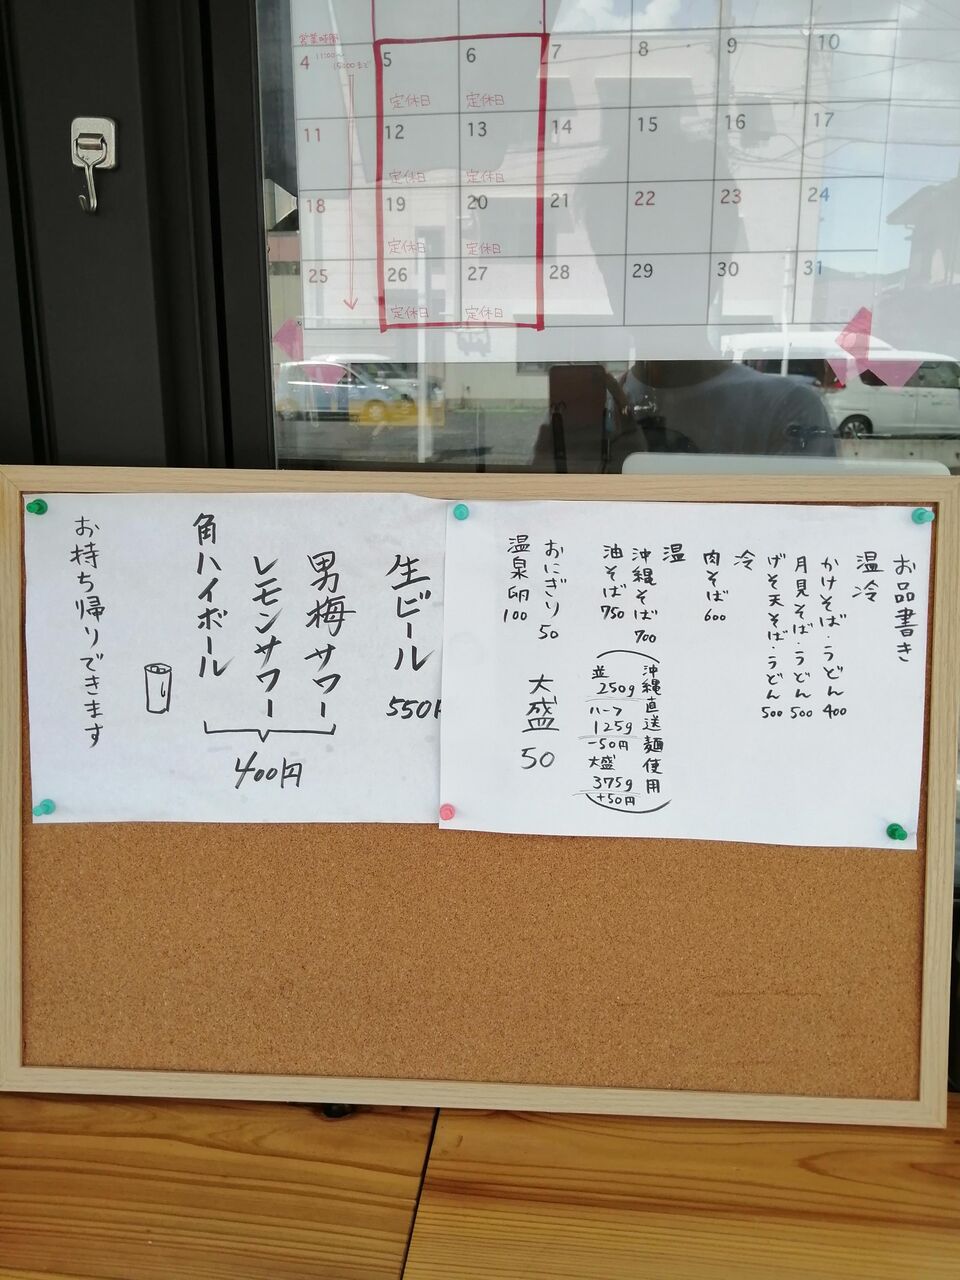 営業時間
11:00〜
15:00まで
4 5 6 7 8 9 10
定休日 定休日
11 12 13 14 15 16 17
定休日 定休日
18 19 20 21 22 23 24
定休日 定休日
25 26 27 28 29 30 31
定休日 定休日
お品書き
温冷
かけそば・うどん 400
月見そば・うどん 500
げそ天そば・うどん 500
冷
肉そば 600
温
沖縄そば 700
油そば 750
沖縄直送麺使用
並
250g
ハーフ
125g
-50円
大盛
375g
+50円
おにぎり 50
温泉卵 100
大盛 50
生ビール 550
男梅サワー
レモンサワー
角ハイボール
400円
お持ち帰りできます